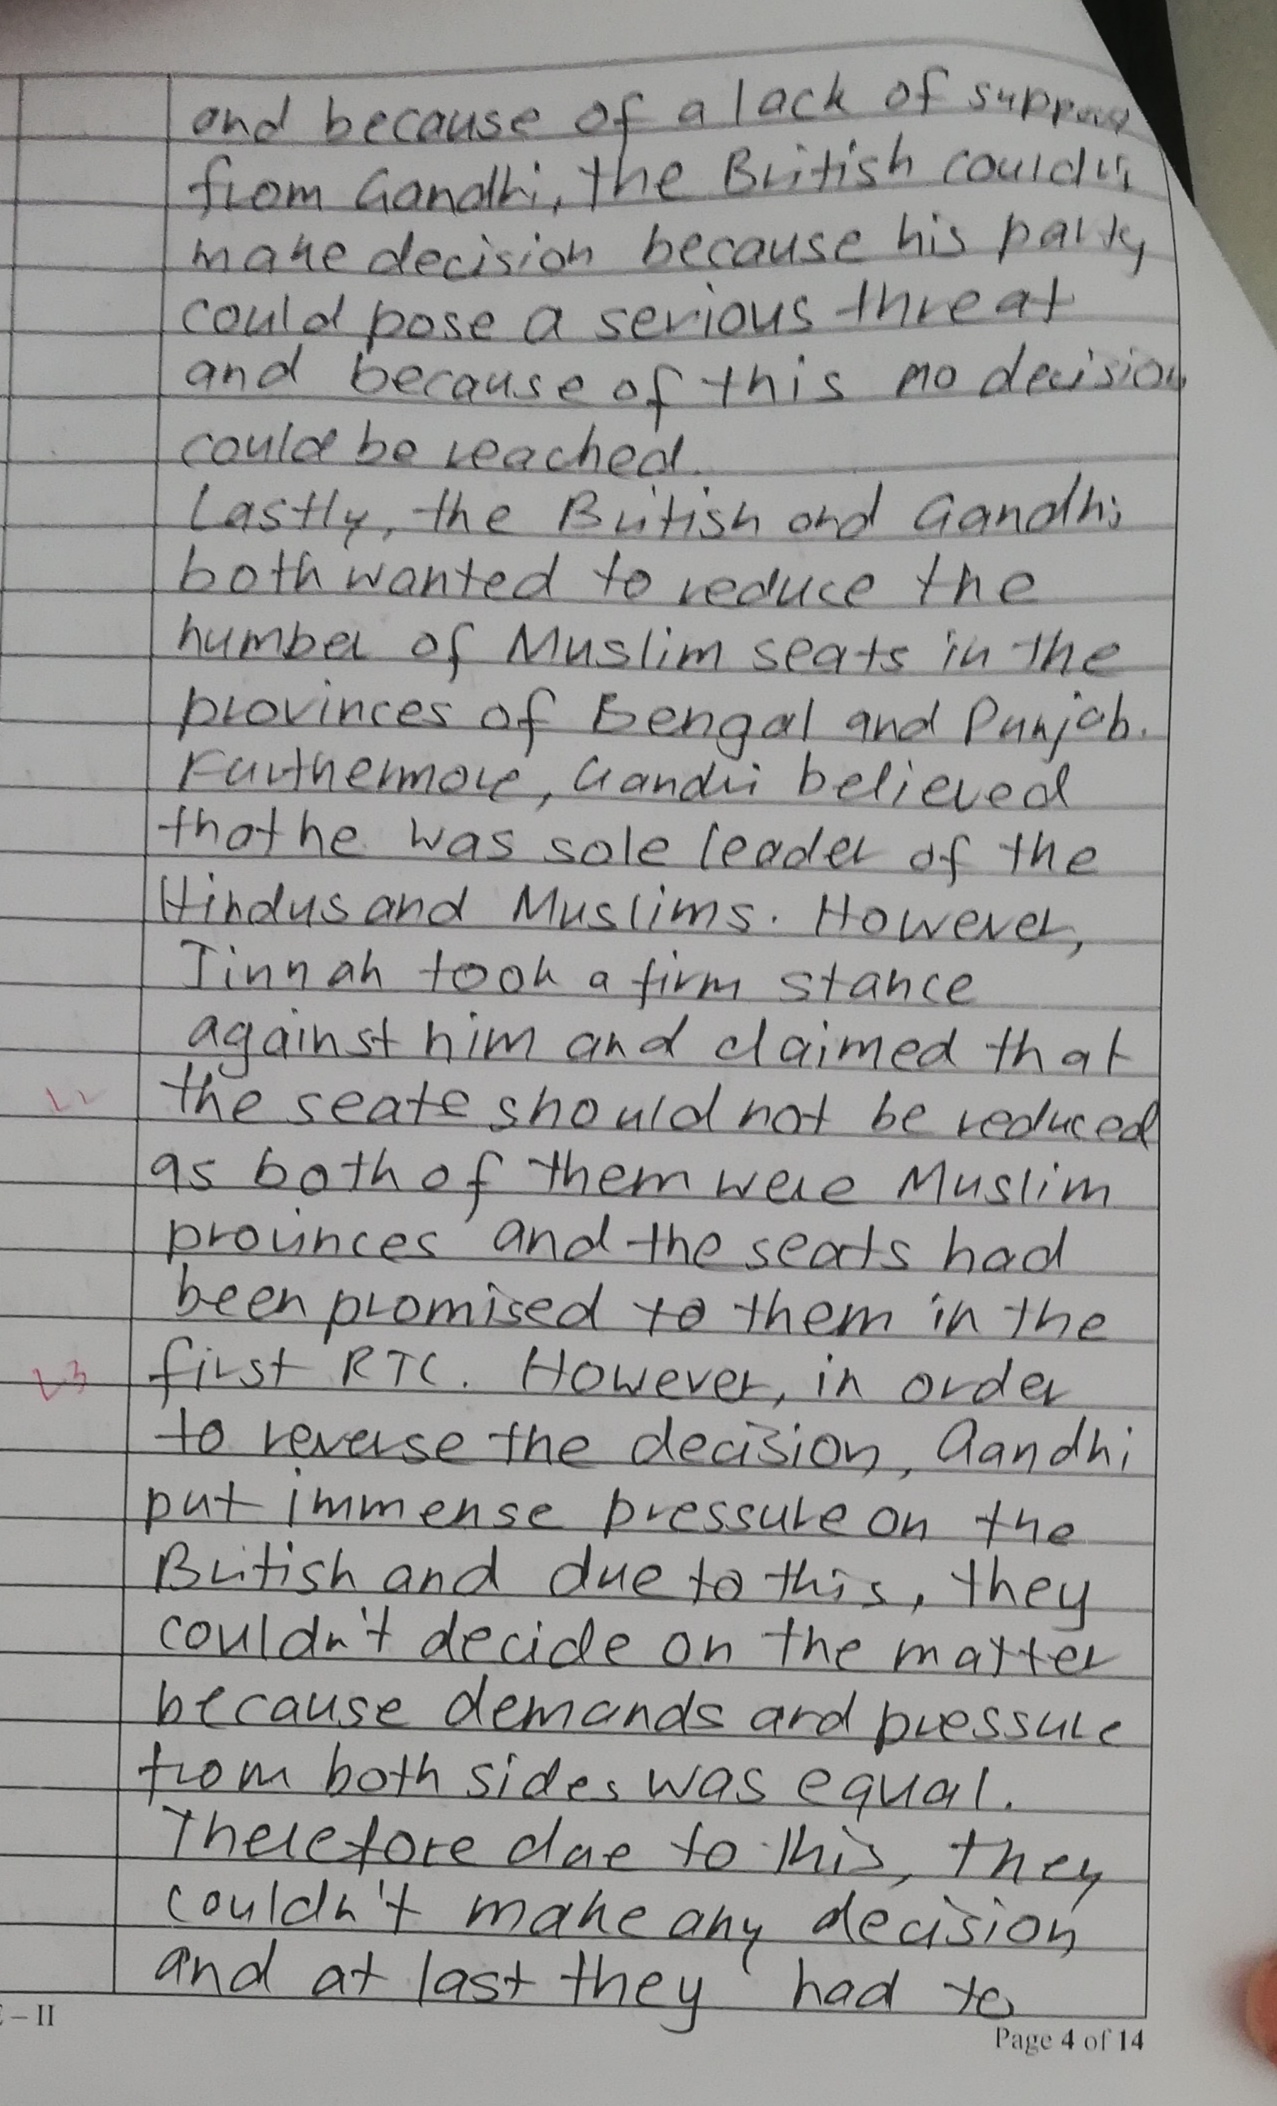 and because of a lack of support
from Gandhi, the British couldn't
make decision because his party
could pose a serious threat
and because of this no decision
could be reached.
Lastly, the British and Gandhi
both wanted to reduce the
number of Muslim seats in the
provinces of Bengal and Punjab.
Furthermore, Gandhi believed
that he was sole leader of the
Hindus and Muslims. However,
Jinnah took a firm stance
against him and claimed that
L2 the seats should not be reduced
as both of them were Muslim
provinces and the seats had
been promised to them in the
L3 first RTC. However, in order
to reverse the decision, Gandhi
put immense pressure on the
British and due to this, they
couldn't decide on the matter
because demands and pressure
from both sides was equal.
Therefore due to this, they
couldn't make any decision
and at last they had to
E – II
Page 4 of 14